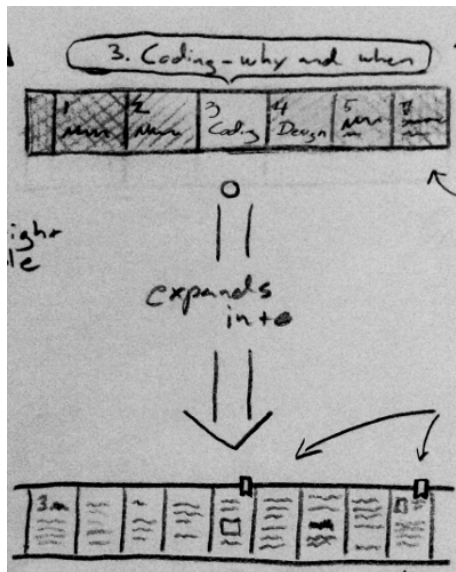 3. Coding - why and when
1
2
3
Coding
4
Design
5
expands
into
3.